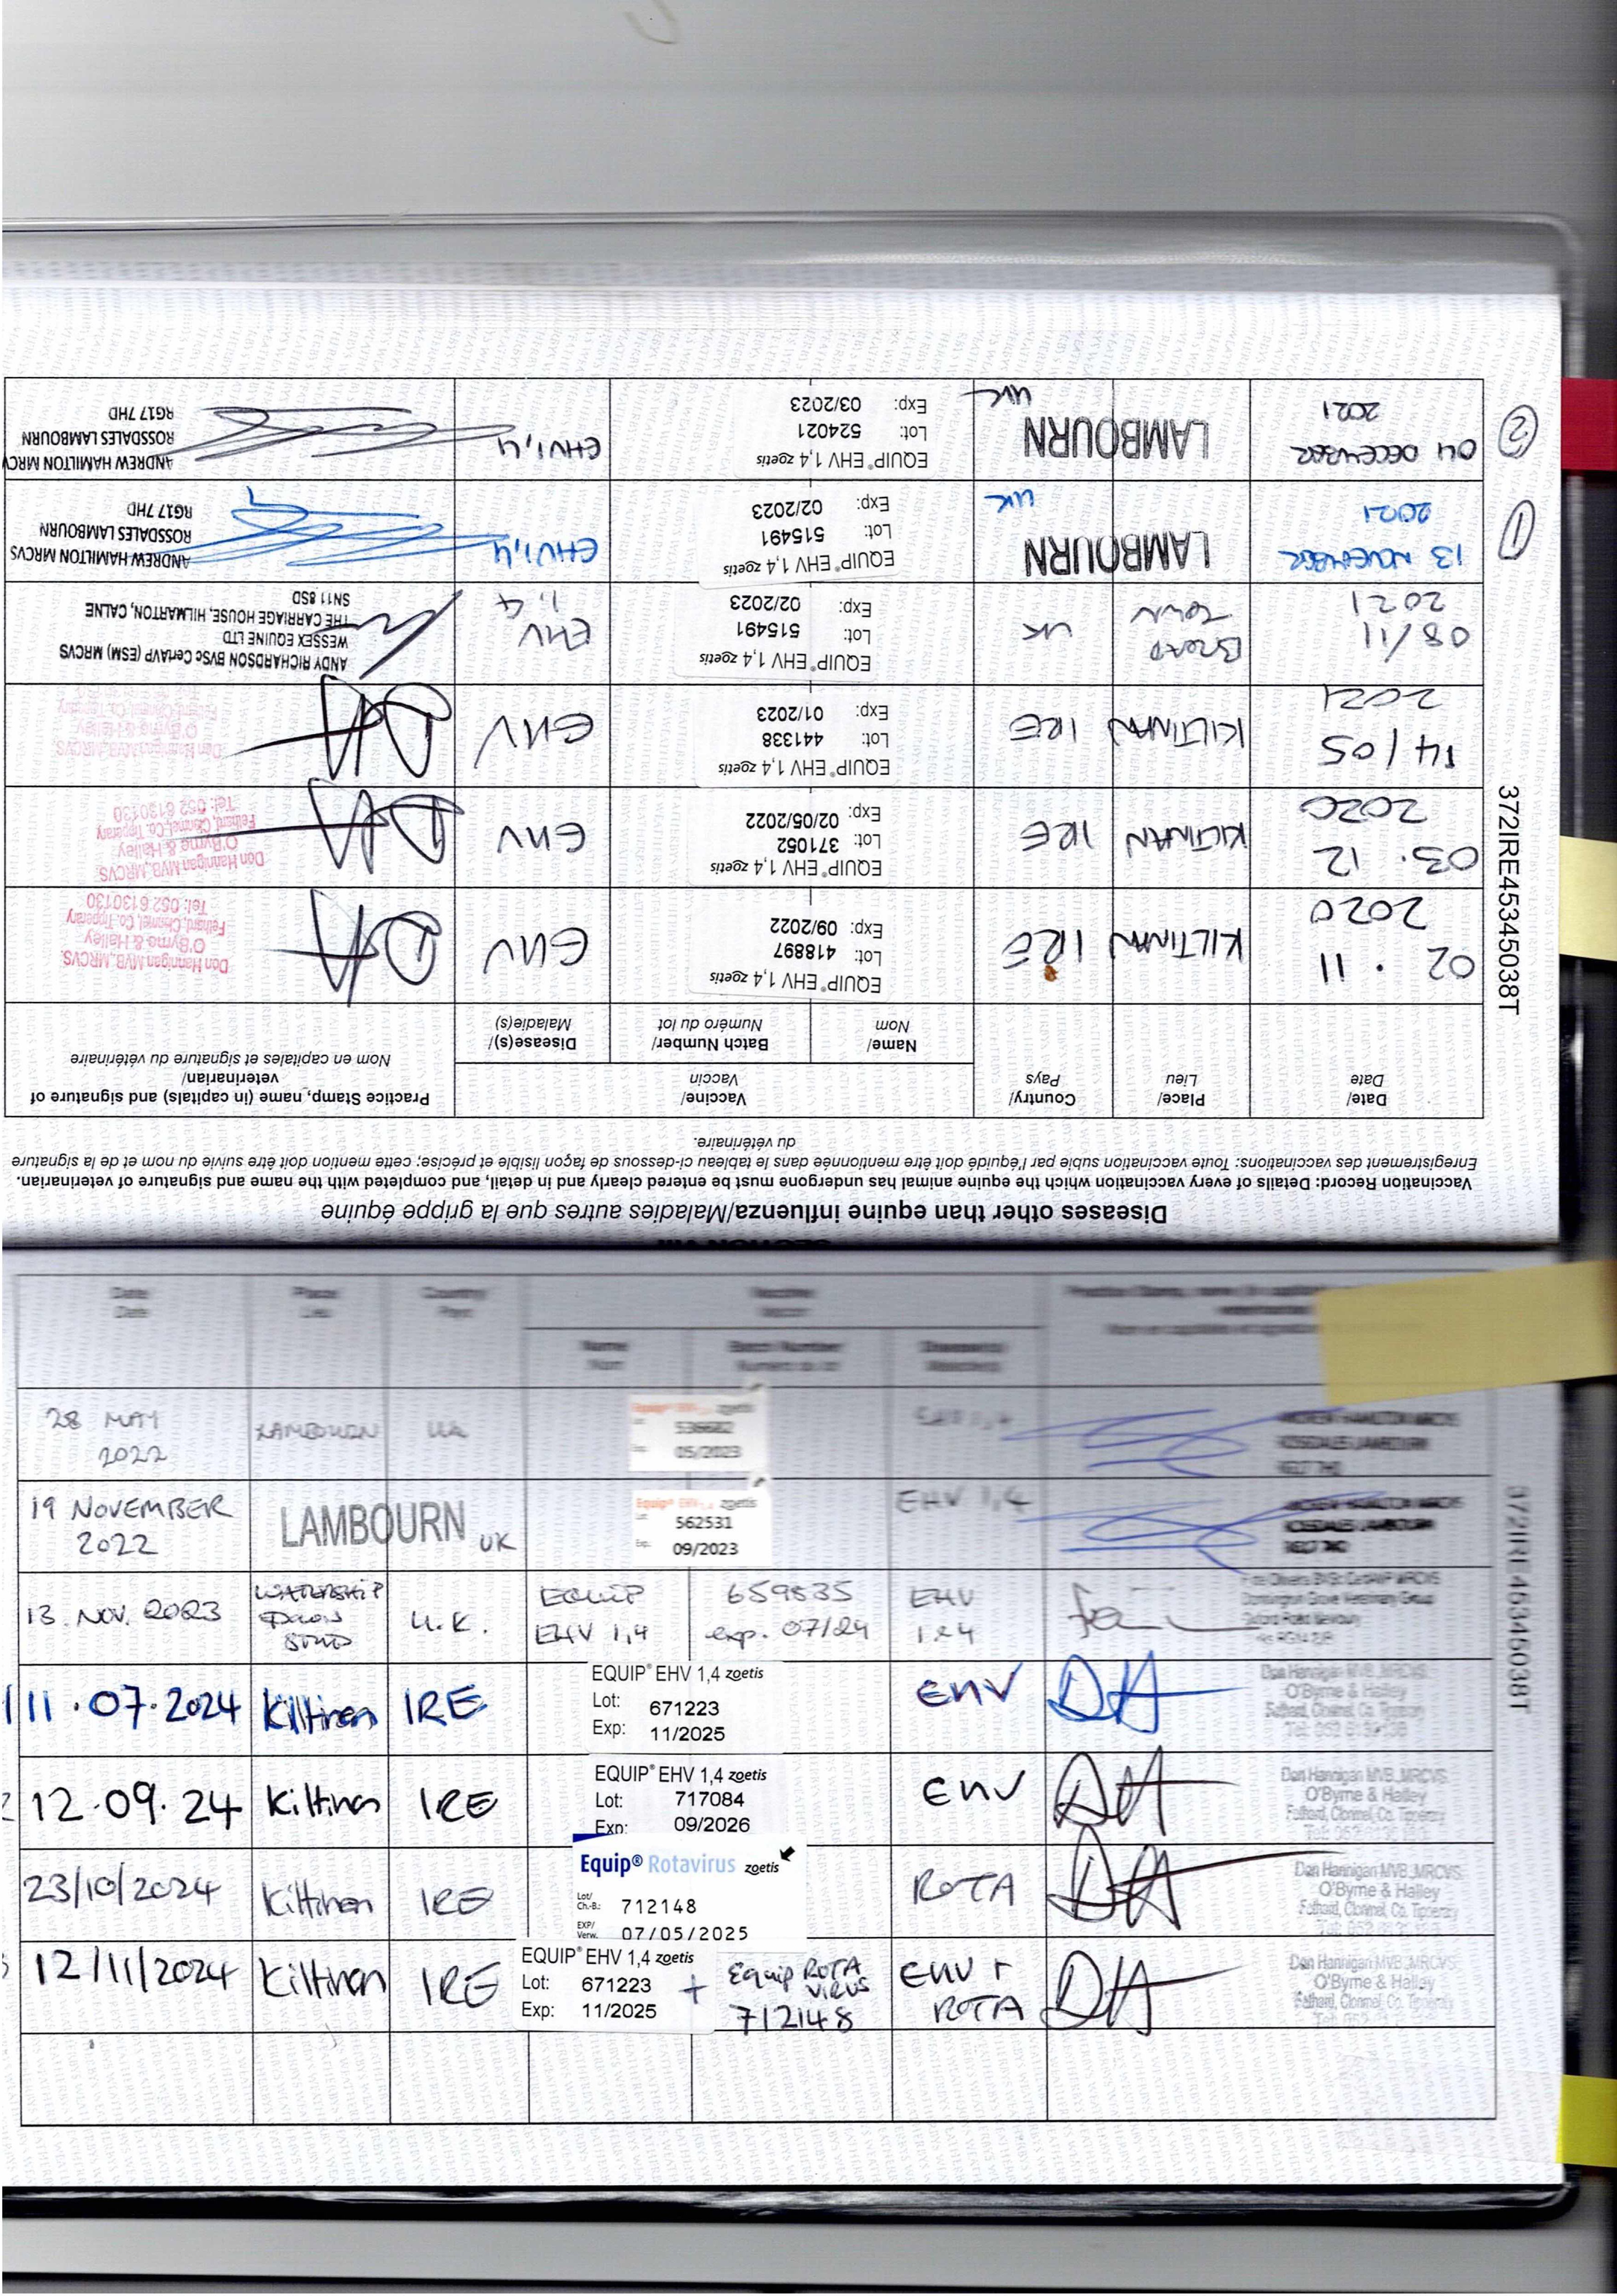 SECTION VIII
Diseases other than equine influenza/Maladies autres que la grippe équine
Vaccination Record: Details of every vaccination which the equine animal has undergone must be entered clearly and in detail, and completed with the name and signature of veterinarian.
Enregistrement des vaccinations: Toute vaccination subie par l'équidé doit être mentionnée dans le tableau ci-dessous de façon lisible et précise; cette mention doit être suivie du nom et de la signature
du vétérinaire.
Date/
Date
Place/
Lieu
Country/
Pays
Vaccine/
Vaccin
Name/
Nom
Batch Number/
Numéro du lot
Disease(s)/
Maladie(s)
Practice Stamp, name (in capitals) and signature of
veterinarian/
Nom en capitales et signature du vétérinaire
02 . 11
2020
KILTINAN
IRE
EQUIP® EHV 1,4 zoetis
Lot: 418897
Exp: 09/2022
EHV
Don Hannigan MVB, MRCVS.
O'Byrne & Halley
Fethard, Clonmel, Co. Tipperary
Tel: 052 6130130
03. 12
2020
KILTINAN
IRE
EQUIP® EHV 1,4 zoetis
Lot: 371052
Exp: 02/05/2022
EHV
Don Hannigan MVB, MRCVS.
O'Byrne & Halley
Fethard, Clonmel, Co. Tipperary
Tel: 052 6130130
14/05
2021
KILTINAN
IRE
EQUIP® EHV 1,4 zoetis
Lot: 441338
Exp: 01/2023
EHV
Don Hannigan MVB, MRCVS.
O'Byrne & Halley
Fethard, Clonmel, Co. Tipperary
08/11
2021
BROAD
TOWN
UK
EQUIP® EHV 1,4 zoetis
Lot: 515491
Exp: 02/2023
EHV
1,4
ANDY RICHARDSON BVSc CertAVP (ESM) MRCVS
WESSEX EQUINE LTD
THE CARRIAGE HOUSE, HILMARTON, CALNE
SN11 8SD
①
13 NOVEMBER
2021
LAMBOURN
UK
EQUIP® EHV 1,4 zoetis
Lot: 515491
Exp: 02/2023
EHV1,4
ANDREW HAMILTON MRCVS
ROSSDALES LAMBOURN
RG17 7HD
②
04 DECEMBER
2021
LAMBOURN
UK
EQUIP® EHV 1,4 zoetis
Lot: 524021
Exp: 03/2023
EHV1,4
ANDREW HAMILTON MRCV
ROSSDALES LAMBOURN
RG17 7HD
372IRE45345038T
Date/
Date
Place/
Lieu
Country/
Pays
Vaccine/
Vaccin
Name/
Nom
Batch Number/
Numéro du lot
Disease(s)/
Maladie(s)
28 MAY
2022
LAMBOURN
UK
Equip® EHV 1,4 zoetis
536682
05/2023
EHV 1,4
ANDREW HAMILTON MRCVS
ROSSDALES LAMBOURN
RG17 7HD
19 NOVEMBER
2022
LAMBOURN
UK
Equip® EHV 1,4 zoetis
562531
Exp: 09/2023
EHV 1,4
ANDREW HAMILTON MRCVS
ROSSDALES LAMBOURN
RG17 7HD
13. NOV. 2023
WATERSHIP
DOWN
STUD
U.K.
EQUIP
EHV 1,4
659835
exp. 07/24
EHV
1 & 4
Donnington Grove Veterinary Group
Oxford Road Newbury
11.07.2024
Kiltinan
IRE
EQUIP® EHV 1,4 zoetis
Lot: 671223
Exp: 11/2025
EHV
DH
Don Hannigan MVB, MRCVS.
O'Byrne & Halley
Fethard, Clonmel, Co. Tipperary
12.09.24
Kiltinan
IRE
EQUIP® EHV 1,4 zoetis
Lot: 717084
Exp: 09/2026
EHV
DH
Don Hannigan MVB, MRCVS.
O'Byrne & Halley
Fethard, Clonmel, Co. Tipperary
23/10/2024
Kiltinan
IRE
Equip® Rotavirus zoetis
Lot/
Ch.-B.: 712148
EXP/
Verw. 07/05/2025
ROTA
DH
Don Hannigan MVB, MRCVS.
O'Byrne & Halley
Fethard, Clonmel, Co. Tipperary
12/11/2024
Kiltinan
IRE
EQUIP® EHV 1,4 zoetis
Lot: 671223
Exp: 11/2025
+ Equip ROTA
VIRUS
712148
EHV +
ROTA
DH
Don Hannigan MVB, MRCVS.
O'Byrne & Halley
Fethard, Clonmel, Co. Tipperary
372IRE45345038T